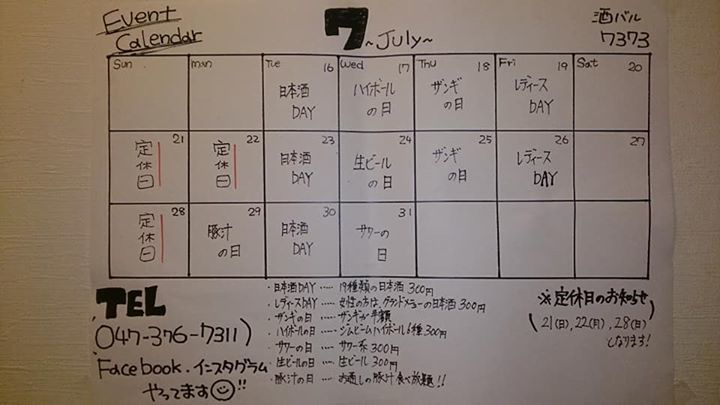 Event
Calendar
7
~July~
酒バル
7373
Sun mon Tue Wed Thu Fri Sat
16 17 18 19 20
日本酒
DAY
ハイボール
の日
ザンギ
の日
レディース
DAY
21 22 23 24 25 26 27
定休日
定休日
日本酒
DAY
生ビール
の日
ザンギ
の日
レディース
DAY
28 29 30 31
定休日
豚汁
の日
日本酒
DAY
サワーの
日
TEL
047-376-7311)
Facebook.インスタグラム
やってます!!
・日本酒DAY ‥‥ 19種類の日本酒 300円
・レディースDAY ‥‥ 女性の方は、グランドメニューの日本酒 300円
・ザンギの日 ‥‥ ザンギが半額
・ハイボールの日 ‥‥ ジムビームハイボール6種 300円
・サワーの日 ‥‥ サワー系 300円
・生ビールの日 ‥‥ 生ビール 300円
・豚汁の日 ‥‥ お通しの豚汁食べ放題!!
※定休日のお知らせ
(21(日),22(月),28(日)
となります!